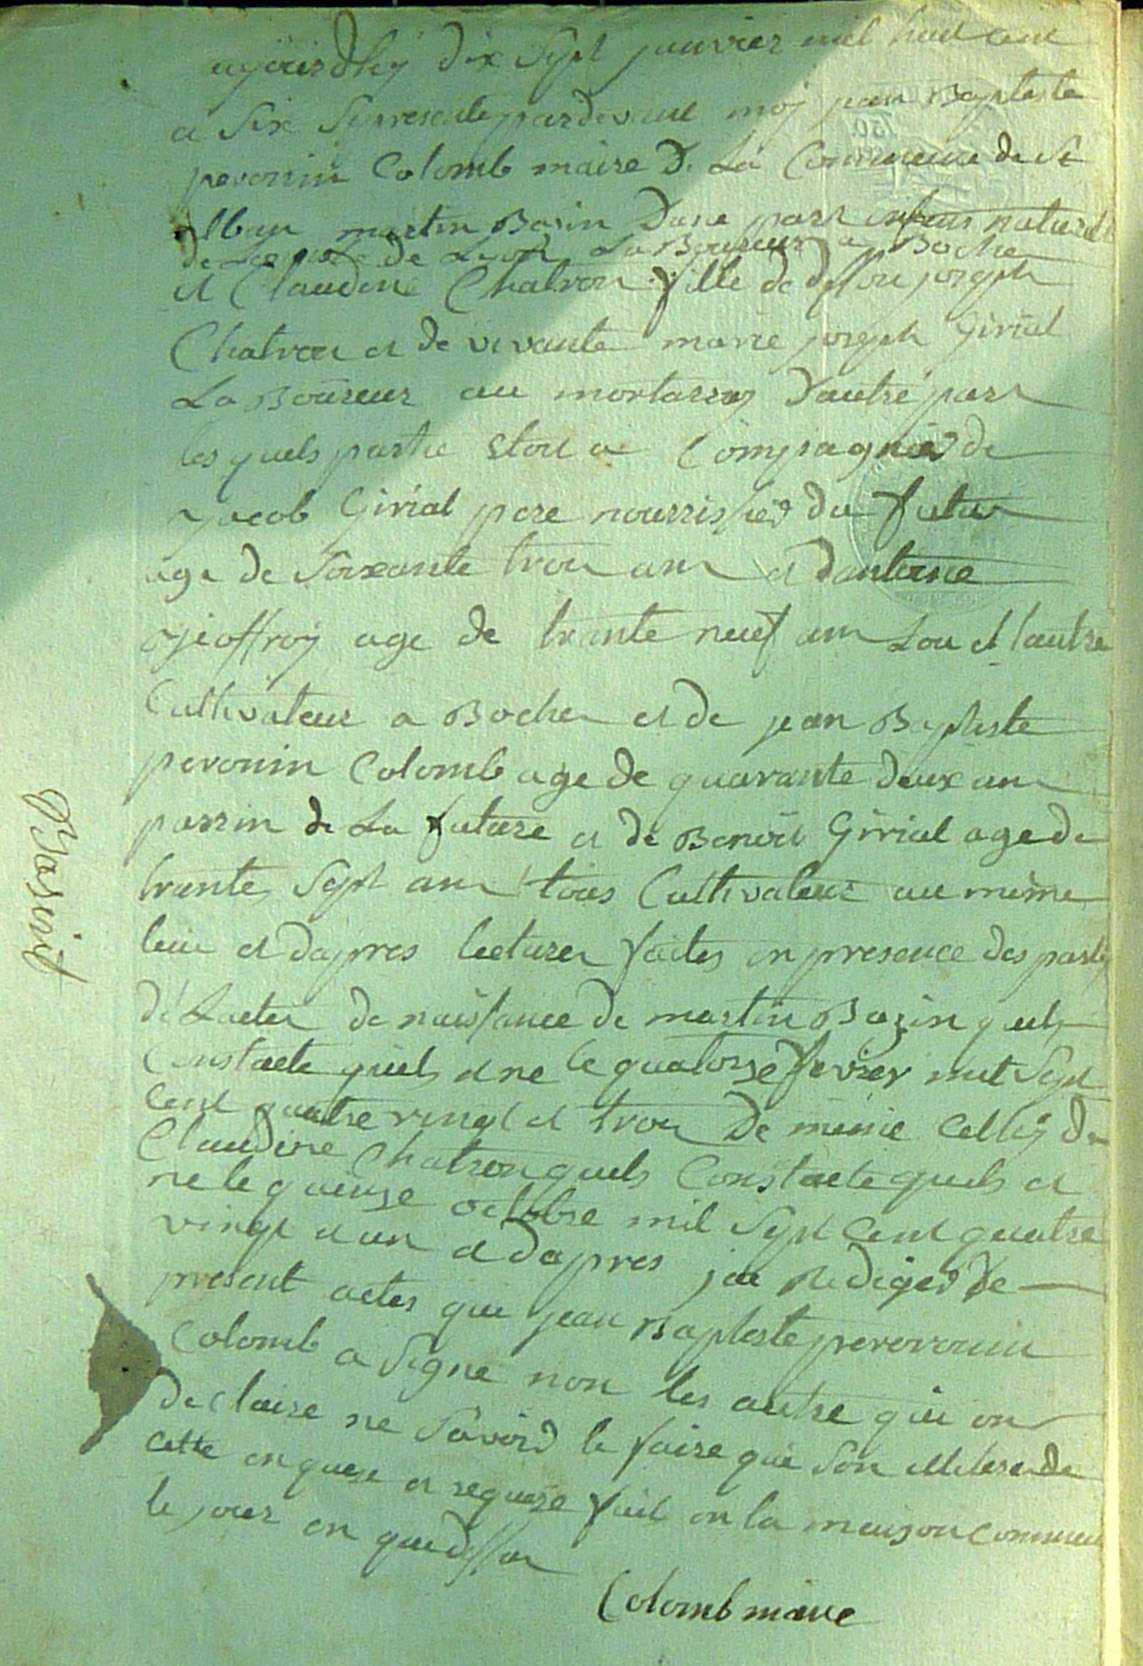 aujourdhuy dix Sept janvier mil huit cent
a six se presente pardevant moy jean Baptiste
peronin Colomb maire De La Commune de St
alban martin Bazin Dune part enfant naturel
de de Lyon La Boureur a Boche
et Claudine Chatron fille de deffou joseph
Chatron et de vivante marie joseph Girial
La Boureur au mortarrey Dautre part
les quels partie etou a Compagnier de
Jacob Girial pere nourrissier du futur
age de soixante trois ans et dantoine
Geoffroy age de trante neuf ans Lou et lautre
Cultivateur a Boche et de jean Baptiste
peronin Colomb age de quarante deux an
parrin de La future et de Benoit Girial age de
trante Sept ans tous Cultivateur au meme
lieu et dapres lecturer faites en presence des partie
de Lacter de naissance de martin Bazin quels
Constacte quels et ne le quatorze fevrier mil Sept
Cent quatre vingt et trois De meme Celluy de
Claudine Chatron quels Constacte quels et
ne le quinze octobre mil Sept Cent quatre
vingt et un et dapres jai Rediger Le
present actes que jean Baptiste peroronin
Colomb a Signe non les autre qui on
declaire ne Savoir le faire que Son
cette enquere et requere fait en la maison commune
le jour en que dessu
Colomb maire
Basin